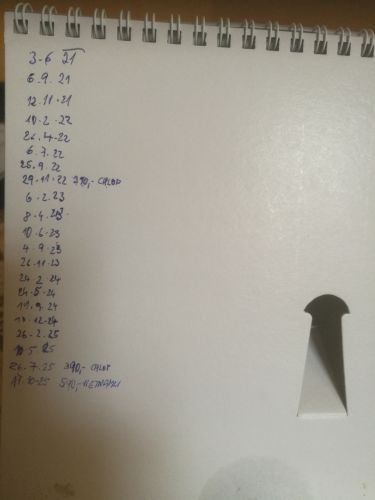 3-6 21
6.9.21
12.11.21
10.2.22
26.4.22
6.7.22
25.9.22
29.11.22 390,- CHLOP
6.2.23
8.4.23
10.6.23
4.9.23
26.11.23
24 2 24
24.5.24
11.9.24
13.12.24
26.2.25
10.5 25
26.7.25 390,- CHLOP
17.10.25 510,-